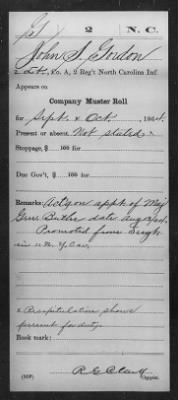 G | 2 | N. C.
John S. Gordon
2 Lt., Co. A, 2 Reg't North Carolina Inf.
Appears on
Company Muster Roll
for Sept. & Oct., 1864.
Present or absent, Not stated.
Stoppage, $ 100 for
Due Gov't, $ 100 for
Remarks: Actg on appt. of Maj
Genl Butler date Aug
Promoted from Sergt
in N. Y. Cav.
* Recapitulation shows
present for duty.
Book mark:
R. G. Clark
Copyist.